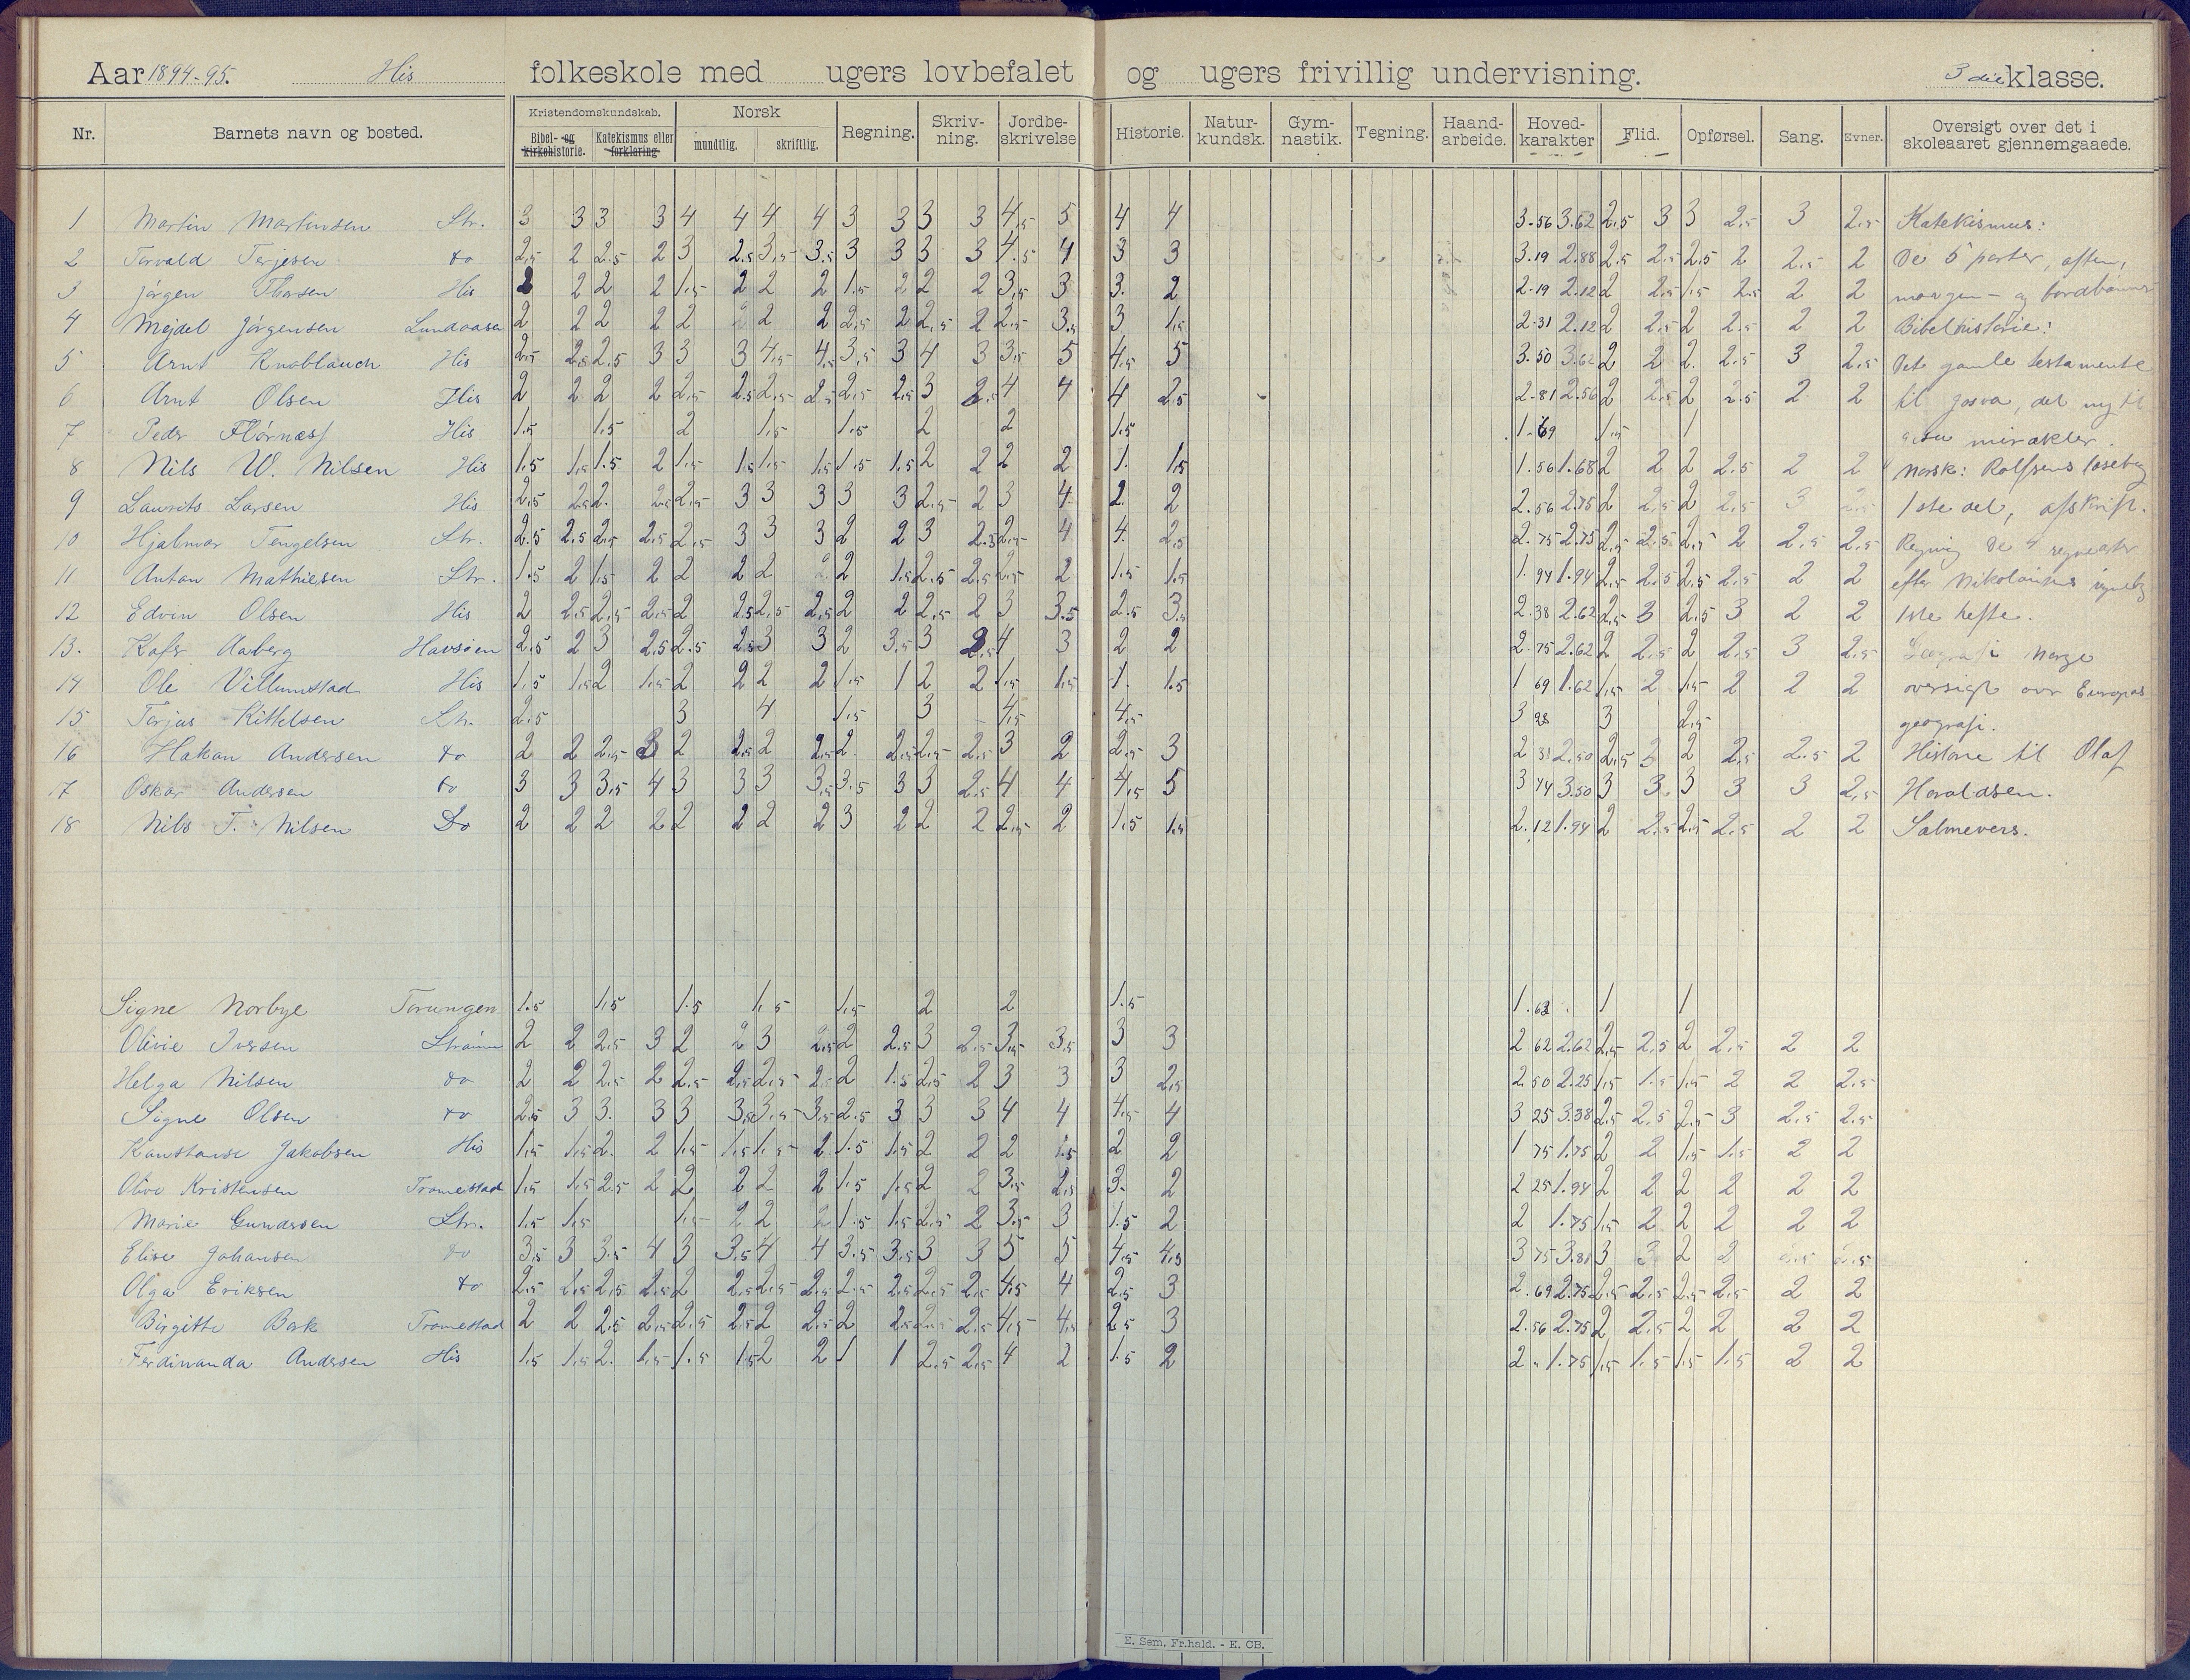 Aar 1894-95. His folkeskole med ugers lovbefalet og ugers frivillig undervisning. 3 die klasse.
Nr. Barnets navn og bosted. Kristendomskundskab. Norsk Regning. Skriv-ning. Jordbe-skrivelse Historie. Natur-kundsk. Gym-nastik. Tegning. Haand-arbeide. Hoved-karakter Flid. Opførsel. Sang. Evner. Oversigt over det i skoleaaret gjennemgaaede.
Bibel- og kirkehistorie. Katekismus eller forklaring mundtlig. skriftlig.
1 Martin Martinsen Str. 3 3 3 3 4 4 4 4 3 3 3 3 4,5 5 4 4 3.56 3.62 2.5 3 3 2.5 3 2.5 Katekismus:
2 Torvald Terjesen do 2,5 2 2.5 2 3 2.5 3,5 3.5 3 3 3 3 4.5 4 3 3 3.19 2.88 2.5 2.5 2.5 2 2.5 2 De 5 parter, aften,
3 Jørgen Thorsen His 2 2 2 2 1.5 2 2 2 1.5 2 2 2 3,5 3 3. 2 2.19 2.12 2 2.5 1.5 2.5 2 2 morgen- og bordbønner
4 Mejdel Jørgensen Lundaasen 2 2 2 2 2 2 2 2 2,5 2 2,5 2 2,5 3.5 3 1.5 2.31 2.12 2 2.5 2 2.5 2 2 Bibelhistorie:
5 Arnt Knoblauch His 2.5 2.5 2.5 3 3 3 4,5 4.5 3,5 3 4 3 3,5 5 4,5 5 3.50 3.62 2 2 2. 2.5 3 2.5 Det gamle testamente
6 Arnt Olsen His 2 2 2 2 2,5 2.5 2,5 2.5 2,5 2.5 3 2.5 4 4 4 2.5 2.81 2.56 2 2.5 2 2.5 2 2 til Josva, det ny til
7 Peder Flörnæss His 1.5 1.5 2 1.5 1.5 2 2 1.5 1.69 1.5 1 mirakler.
8 Nils W. Nilsen His 1.5 1.5 1.5 2 1.5 1.5 1.5 1.5 1.5 1.5 2 2 2 2 1. 1.5 1.56 1.68 2 2 2 2.5 2 2 Norsk: Rolfsens læsebog
9 Laurits Larsen His 2.5 2.5 2. 2.5 2,5 3 3 3 3 3 2.5 2 3 4 2. 2 2.56 2.75 2 2.5 2 2.5 3 2.5 1ste del, afskrift.
10 Hjalmar Tengelsen Str. 2.5 2.5 2.5 2.5 2.5 3 3 3 2 2 3 2.5 2,5 4 4. 2.5 2.75 2.75 2.5 2.5 2.5 2 2.5 2.5 Regning De 4 regnearter
11 Anton Mathiesen Str. 1.5 2 1.5 2 2 2 2 2 2 1.5 2.5 2.5 2.5 2 1.5 1.5 1.94 1.94 2.5 2.5 2.5 2.5 2 2 efter Nikolaisens
12 Edvin Olsen His 2 2.5 2.5 2.5 2 2.5 2.5 2.5 2 2 2.5 2 3 3.5 2.5 3. 2.38 2.62 2.5 3 2.5 3 2 2 1ste hefte.
13. Kafer Aaberg Havsöen 2.5 2 3 2.5 2.5 2.5 3 3 2 3.5 3 2.5 4 3 2 2 2.75 2.62 2 2.5 2 2.5 3 2.5 Geografi Norge
14 Ole Villumstad His 1.5 1.5 2 1.5 2 2 2 2 1.5 1 2 2 1.5 1.5 1. 1.5 1 69 1.62 1.5 2 1.5 2 2 2 oversigt over Europas
15 Terjus Kittelsen Str. 2.5 3 4 1.5 3 4,5 4,5 3 28 3 2.5 geografi.
16 Hakan Andersen do 2 2 2.5 3 2 2.5 2 2.5 2. 2.5 2.5 2.5 3 2 2.5 3 2 31 2.50 2.5 3 2 2.5 2.5 2 Historie til Olaf
17 Oskar Andersen do 3 3 3,5 4 3 3 3 3.5 3.5 3 3 2.5 4 4 4,5 5 3 74 3.50 3 3. 3 3 3 2.5 Haraldsen.
18 Nils T. Nilsen Do 2 2 2 2 2 2 2 2 3 2 2 2 2,5 2 1.5 1.5 2.12 1.94 2 2.5 2.5 2.5 2 2 Salmevers.
Signe Norbye Torungen 1.5 1.5 1.5 1.5 1.5 2 2 1.5 1.63 1 1
Olivie Iversen Strömm 2 2 2.5 3 2 2 3 2.5 2 2.5 3 2.5 3,5 3.5 3 3 2 62 2.62 2.5 2.5 2 2.5 2 2
Helga Nilsen do 2 2 2.5 2 2.5 2.5 2.5 2. 2 1.5 2.5 2 3 3 3 2.5 2.50 2.25 1.5 1.5 1.5 2 2 2.5
Signe Olsen do 2.5 3 3. 3 3 3.5 3.5 3.5 2.5 3 3 3 4 4 4,5 4 3 25 3.38 2.5 2.5 2.5 3 2.5 2.5
Konstanse Jakobsen His 1.5 1.5 2. 2 1.5 1.5 1.5 2 1.5 1.5 2 2 2 1.5 2 2 1 75 1.75 2 2 1.5 1.5 2 2
Olive Kristensen Tromestad 1.5 1.5 2.5 2 2 2 2 2 1.5 1.5 2 2 3,5 2.5 3. 2 2 25 1.94 2 2 2 2 2 2
Marie Gundersen Str. 1.5 1.5 1.5 2 2 2 1.5 1.5 2.5 2 3.5 3 1.5 2 2 1.75 1.5 2 2 2 2 2
Elise Johansen do 3.5 3 3.5 4 3 3.5 4 4 3.5 3.5 3 3 5 5 4,5 4.5 3 75 3.81 3 3 2 2
Olga Eriksen do 2.5 2.5 2.5 2.5 2 2.5 2.5 2.5 2.5 2.5 2.5 2.5 4,5 4 2.5 3 2.69 2.75 2.5 2.5 2.5 2.5 2 2
Birgitte Bork Tromestad 2 2 2.5 2.5 2.5 2.5 2 2.5 2 2.5 2.5 2.5 4,5 4.5 2.5 3 2.56 2.75 2 2.5 2 2 2 2
Ferdinanda Andersen His 1.5 1.5 2. 1.5 1.5 1.5 2 2 1 1 2.5 2.5 4 2 1.5 2 2 1.75 1.5 1.5 1.5 1.5 2 2
E. Sem, Fr.hald. - E. CB.